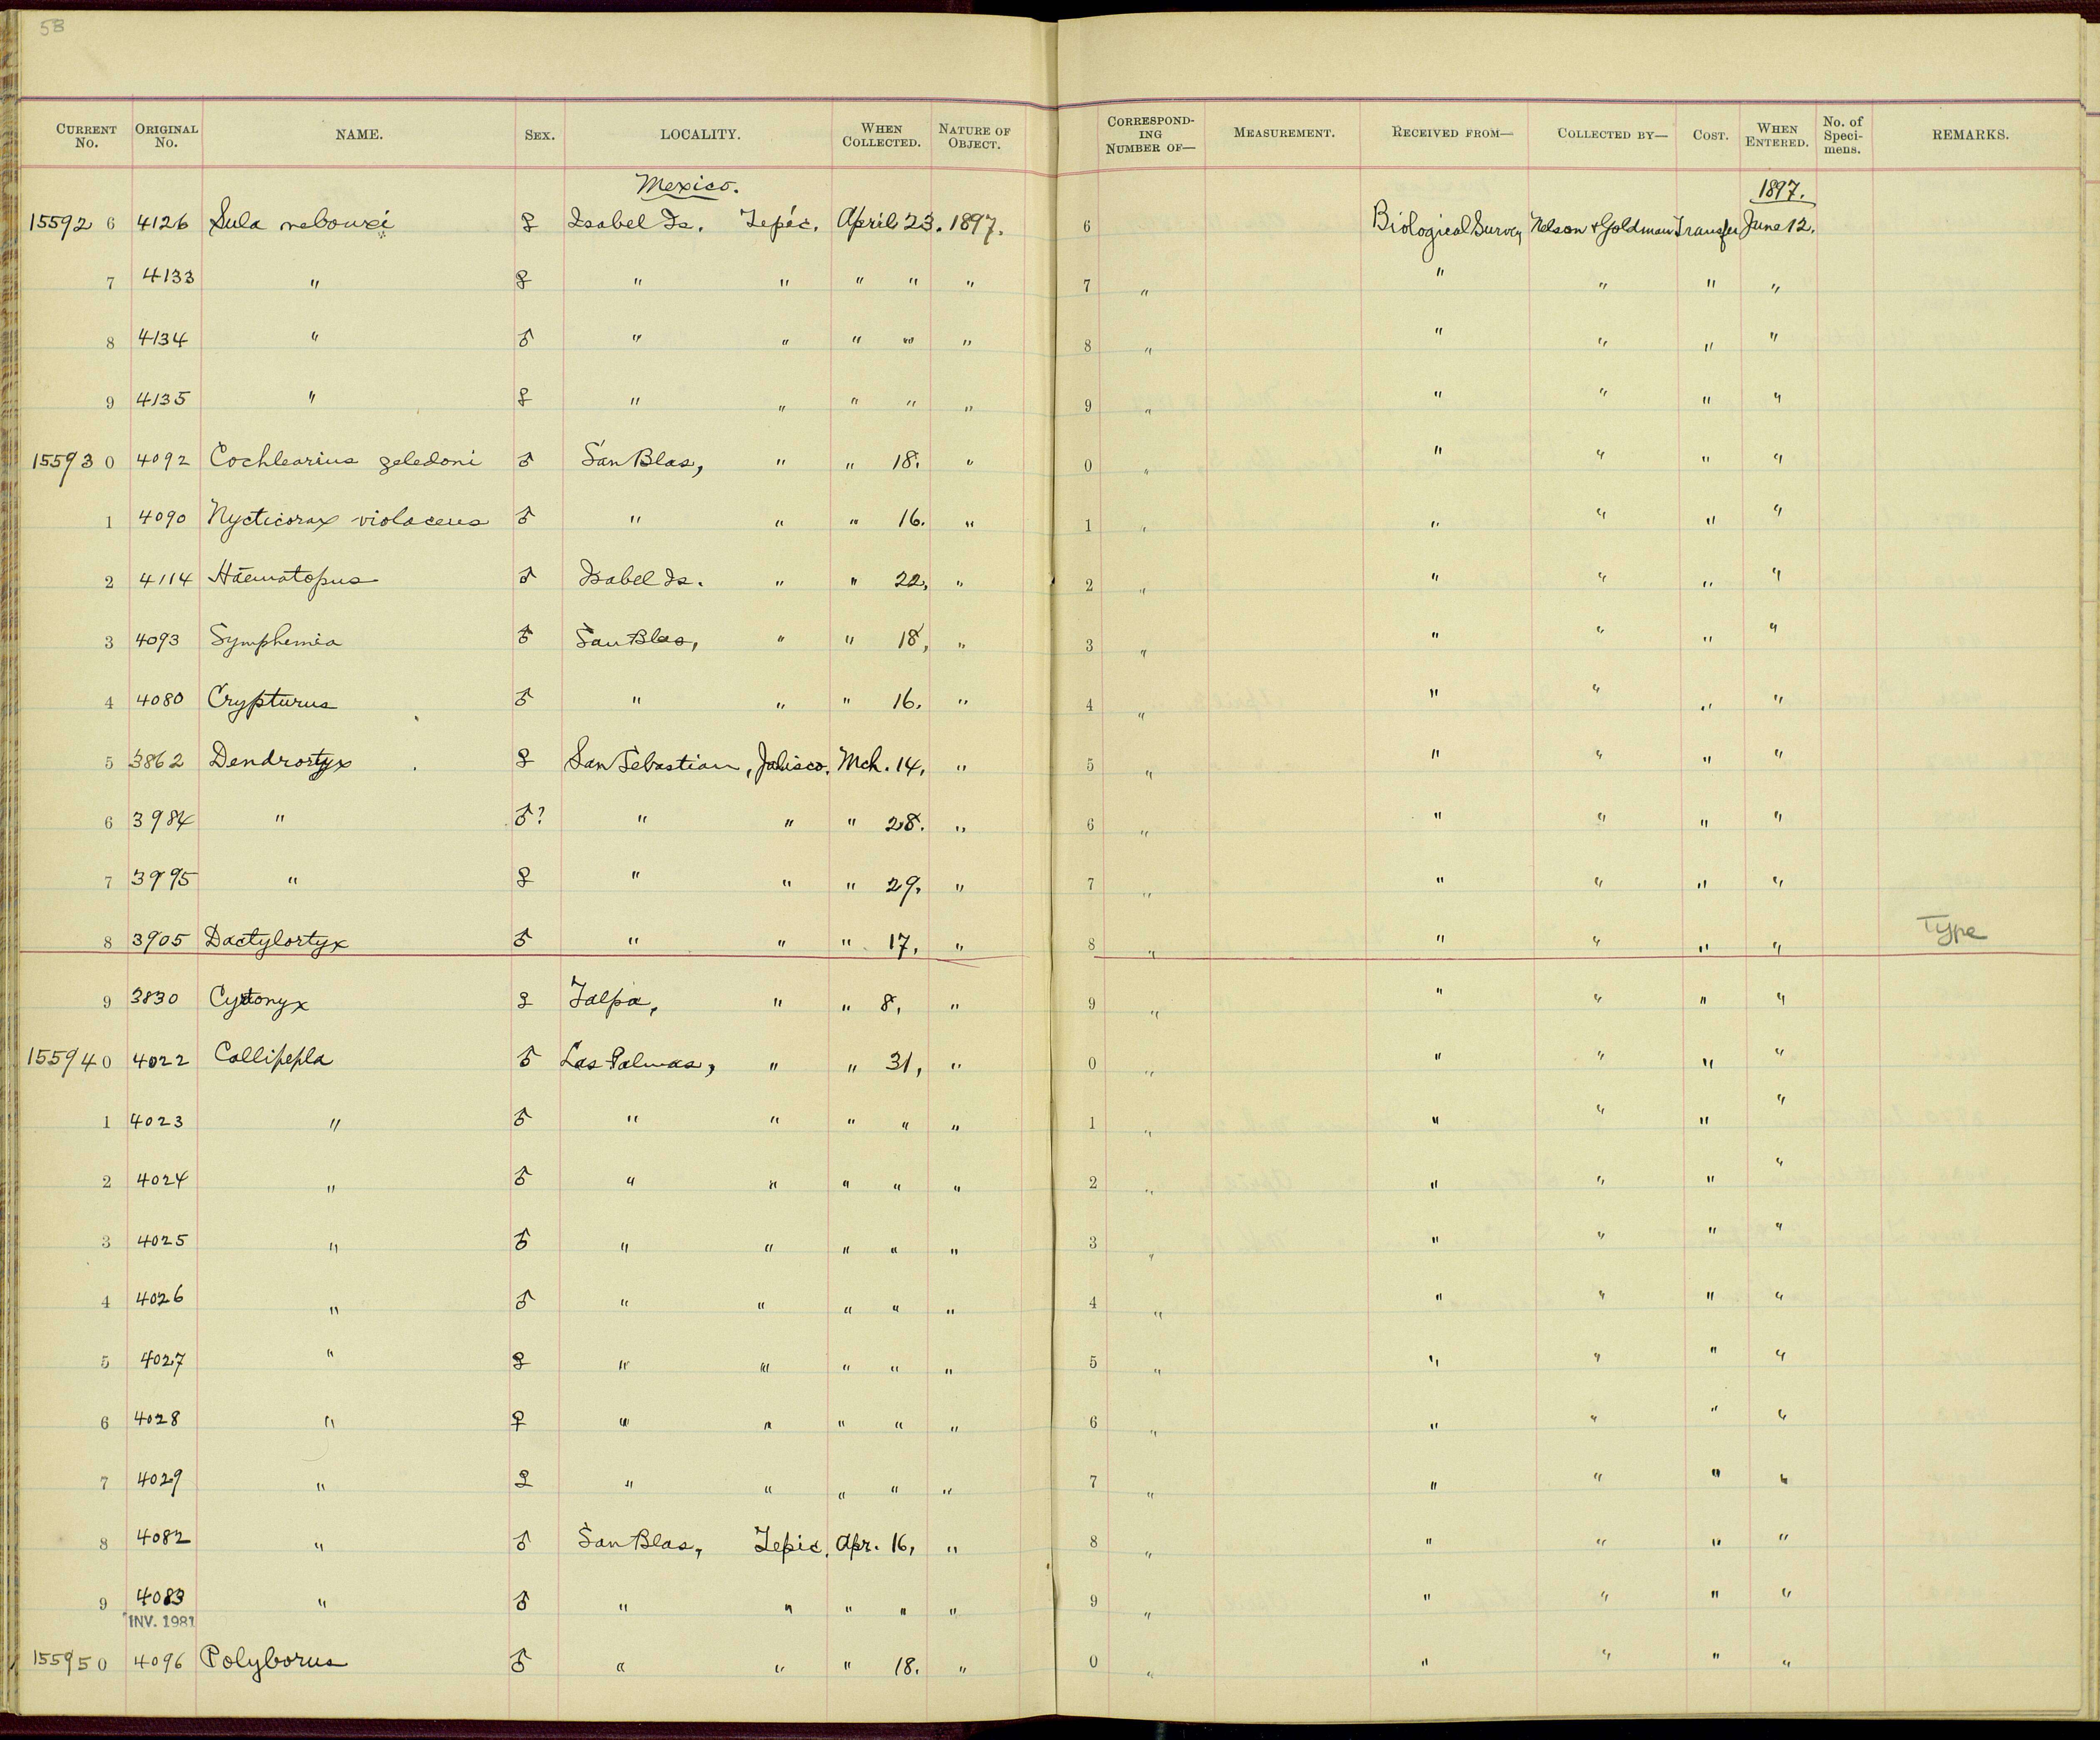 58
CURRENT No. ORIGINAL No. NAME. SEX. LOCALITY. WHEN COLLECTED. NATURE OF OBJECT. CORRESPONDING NUMBER OF— MEASUREMENT. RECEIVED FROM— COLLECTED BY— COST. WHEN ENTERED. No. of Specimens. REMARKS.
Mexico. 1897.
15592 6 4126 Sula nebouxi ♀ Isabel Is. Tepic. April 23. 1897. 6 Biological Survey Nelson & Goldman Transfer June 12.
7 4133 " ♀ " " " " " 7 " " " " "
8 4134 " ♂ " " " " " 8 " " " " "
9 4135 " ♀ " " " " " 9 " " " " "
15593 0 4092 Cochlearius zeledoni ♂ San Blas, " " 18. " 0 " " " " "
1 4090 Nycticorax violaceus ♂ " " " 16. " 1 " " " " "
2 4114 Haematopus ♂ Isabel Is. " " 22, " 2 " " " " "
3 4093 Symphemia ♂ San Blas, " " 18, " 3 " " " " "
4 4080 Crypturus ♂ " " " 16. " 4 " " " " "
5 3862 Dendrortyx ♀ San Sebastian, Jalisco. Mch. 14, " 5 " " " " "
6 3984 " ♂? " " " 28. " 6 " " " " "
7 3995 " ♀ " " " 29, " 7 " " " " "
8 3905 Dactylortyx ♂ " " " 17, " 8 " " " " " Type
9 3830 Cyrtonyx ♀ Talpa, " " 8, " 9 " " " " "
15594 0 4022 Callipepla ♂ Las Palmas, " " 31, " 0 " " " " "
1 4023 " ♂ " " " " " 1 " " " " "
2 4024 " ♂ " " " " " 2 " " " " "
3 4025 " ♂ " " " " " 3 " " " " "
4 4026 " ♂ " " " " " 4 " " " " "
5 4027 " ♀ " " " " " 5 " " " " "
6 4028 " ♀ " " " " " 6 " " " " "
7 4029 " ♀ " " " " " 7 " " " " "
8 4082 " ♂ San Blas, Tepic. Apr. 16, " 8 " " " " "
9 4083 " ♂ " " " " " 9 " " " " "
INV. 1981
15595 0 4096 Polyborus ♂ " " " 18. " 0 " " " " "